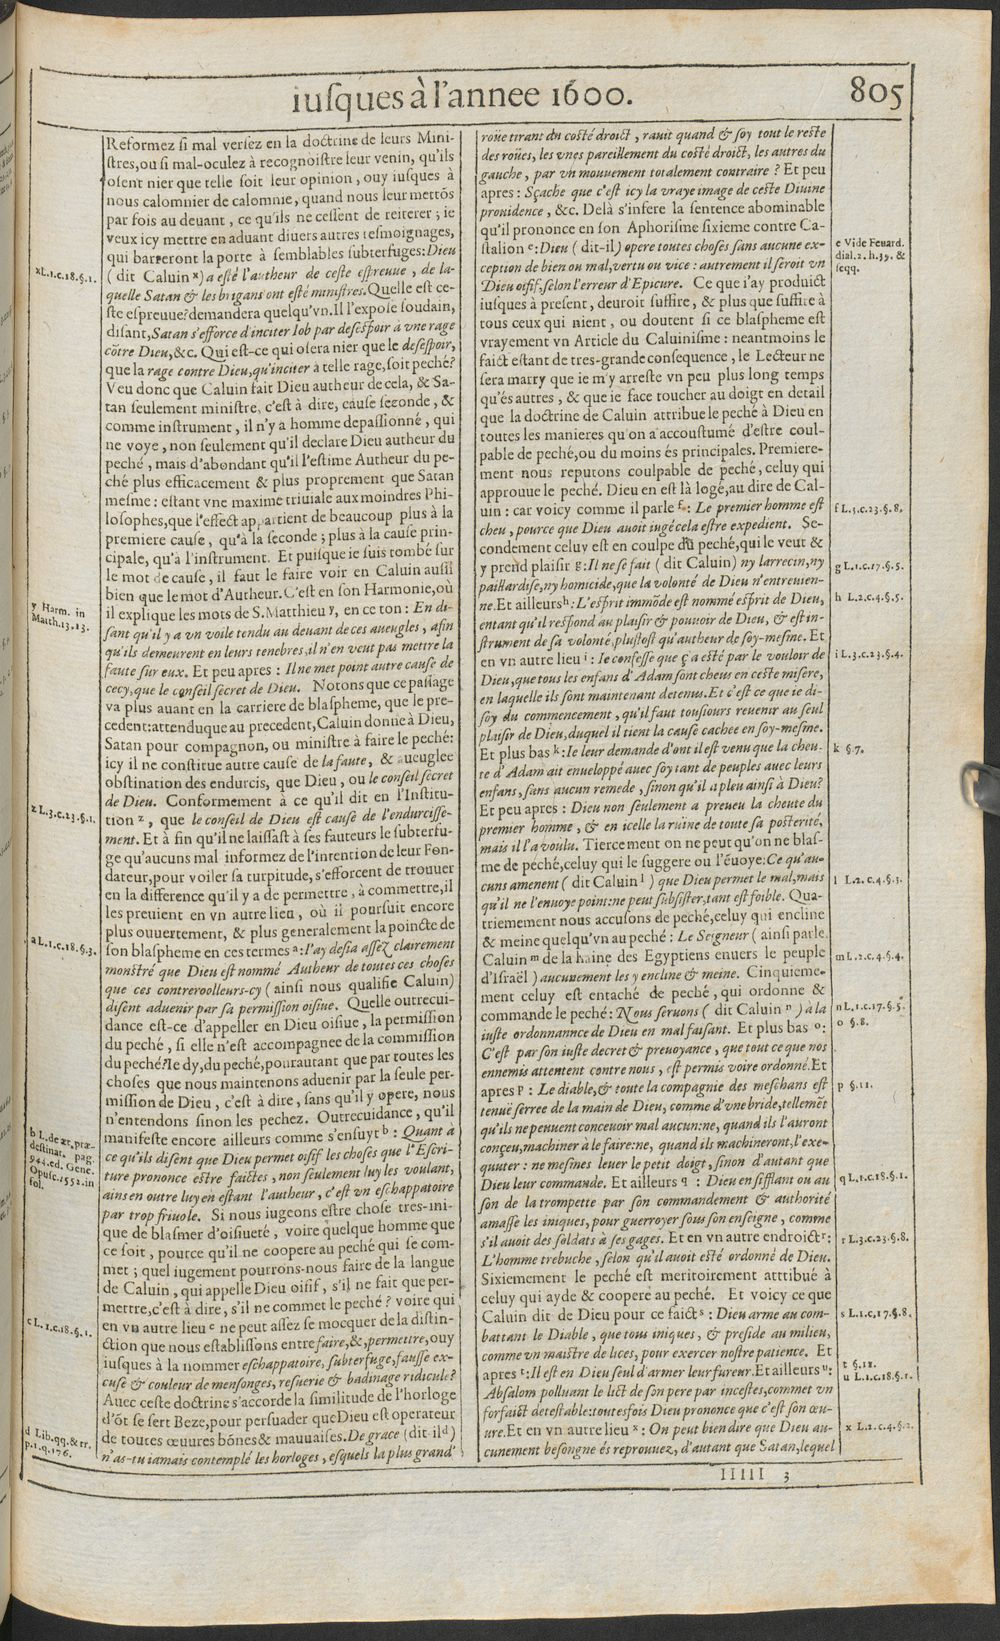 iusques à l'annee 1600.
805
Reformez si mal versez en la doctrine de leurs Mini-
stres, ou si mal-oculez à recognoistre leur venin, qu'ils
osent nier que telle soit leur opinion, ouy iusques à
nous calomnier de calomnie, quand nous leur mettõs
par fois au deuant, ce qu'ils ne cessent de reiterer; ie
veux icy mettre en aduant diuers autres tesmoignages,
qui barreront la porte à semblables subterfuges: Dieu
( dit Caluin x) a esté l'autheur de ceste espreuue, de la-
quelle Satan & les brigans ont esté ministres. Quelle est ce-
ste espreuue? demandera quelqu'vn. Il l'expose soudain,
disant, Satan s'efforce d'inciter Iob par desespoir à vne rage
cõtre Dieu, &c. Qui est-ce qui osera nier que le desespoir,
que la rage contre Dieu, qu'inciter à telle rage, soit peché?
Veu donc que Caluin fait Dieu autheur de cela, & Sa-
tan seulement ministre, c'est à dire, cause seconde, &
comme instrument, il n'y a homme depassionné, qui
ne voye, non seulement qu'il declare Dieu autheur du
peché, mais d'abondant qu'il l'estime Autheur du pe-
ché plus efficacement & plus proprement que Satan
mesme: estant vne maxime triuiale aux moindres Phi-
losophes, que l'effect appartient de beaucoup plus à la
premiere cause, qu'à la seconde; plus à la cause prin-
cipale, qu'à l'instrument. Et puisque ie suis tombé sur
le mot de cause, il faut le faire voir en Caluin aussi
bien que le mot d'Autheur. C'est en son Harmonie, où
il explique les mots de S. Matthieu y, en ce ton: En di-
sant qu'il y a vn voile tendu au deuant de ces aueugles, afin
qu'ils demeurent en leurs tenebres, il n'en veut pas mettre la
faute sur eux. Et peu apres: Il ne met point autre cause de
cecy, que le conseil secret de Dieu. Notons que ce passage
va plus auant en la carriere de blaspheme, que le pre-
cedent: attendu que au precedent, Caluin donne à Dieu,
Satan pour compagnon, ou ministre à faire le peché:
icy il ne constitue autre cause de la faute, & aueuglee
obstination des endurcis, que Dieu, ou le conseil secret
de Dieu. Conformement à ce qu'il dit en l'Institu-
tion z, que le conseil de Dieu est cause de l'endurcisse-
ment. Et à fin qu'il ne laissast à ses fauteurs le subterfu-
ge qu'aucuns mal informez de l'intention de leur Fon-
dateur, pour voiler sa turpitude, s'efforcent de trouuer
en la difference qu'il y a de permettre, à commettre, il
les preuient en vn autre lieu, où il poursuit encore
plus ouuertement, & plus generalement la poincte de
son blaspheme en ces termes a: I'ay desia assez clairement
monstré que Dieu est nommé Autheur de toutes ces choses
que ces contreroolleurs-cy ( ainsi nous qualifie Caluin)
disent aduenir par sa permission oisiue. Quelle outrecui-
dance est-ce d'appeller en Dieu oisiue, la permission
du peché, si elle n'est accompagnee de la commission
du peché? Ie dy, du peché, pourautant que par toutes les
choses que nous maintenons aduenir par la seule per-
mission de Dieu, c'est à dire, sans qu'il y opere, nous
n'entendons sinon les pechez. Outrecuidance, qu'il
manifeste encore ailleurs comme s'ensuyt b: Quant à
ce qu'ils disent que Dieu permet oisif les choses que l'Escri-
ture prononce estre faictes, non seulement luy les voulant,
ains en outre luy en estant l'autheur, c'est vn eschappatoire
par trop friuole. Si nous iugeons estre chose tres-ini-
que de blasmer d'oisiueté, voire quelque homme que
ce soit, pource qu'il ne coopere au peché qui se com-
met; quel iugement pourrons-nous faire de la langue
de Caluin, qui appelle Dieu oisif, s'il ne fait que per-
mettre, c'est à dire, s'il ne commet le peché? voire qui
en vn autre lieu c ne peut assez se mocquer de la distin-
ction que nous establissons entre faire, &, permettre, ouy
iusques à la nommer eschappatoire, subterfuge, fausse ex-
cuse & couleur de mensonges, resuerie & badinage ridicule?
Auec ceste doctrine s'accorde la similitude de l'horloge
d'õt se sert Beze, pour persuader que Dieu est operateur
de toutes œuures bónes & mauuaises. De grace ( dit-il d)
n'as-tu iamais contemplé les horloges, esquels la plus grand'
x L.1.c.18.§.1.
y Harm. in
Matth.13.13.
z L.3.c.23.§.1.
a L.1.c.18.§.3.
b L. de æt. præ-
destinat. pag.
944. ed. Gene.
Opusc. 1552. in
fol.
c L.1.c.18.§.1.
d Lib. qq. & rr.
p.1.q.176.
roüe tirant du costé droict, rauit quand & soy tout le reste
des roües, les vnes pareillement du costé droict, les autres du
gauche, par vn mouuement totalement contraire? Et peu
apres: Sçache que c'est icy la vraye image de ceste Diuine
prouidence, &c. Delà s'infere la sentence abominable
qu'il prononce en son Aphorisme sixieme contre Ca-
stalion e: Dieu ( dit-il) opere toutes choses sans aucune ex-
ception de bien ou mal, vertu ou vice: autrement il seroit vn
Dieu oisif, selon l'erreur d'Epicure. Ce que i'ay produict
iusques à present, deuroit suffire, & plus que suffire à
tous ceux qui nient, ou doutent si ce blaspheme est
vrayement vn Article du Caluinisme: neantmoins le
faict estant de tres-grande consequence, le Lecteur ne
sera marry que ie m'y arreste vn peu plus long temps
qu'és autres, & que ie face toucher au doigt en detail
que la doctrine de Caluin attribue le peché à Dieu en
toutes les manieres qu'on a accoustumé d'estre coul-
pable de peché, ou du moins és principales. Premiere-
ment nous reputons coulpable de peché, celuy qui
approuue le peché. Dieu en est là logé, au dire de Cal-
uin: car voicy comme il parle f: Le premier homme est
cheu, pource que Dieu auoit iugé cela estre expedient. Se-
condement celuy est en coulpe du peché, qui le veut &
y prend plaisir g: Il ne se fait ( dit Caluin) ny larrecin, ny
paillardise, ny homicide, que la volonté de Dieu n'entreuien-
ne. Et ailleurs h: L'esprit immõde est nommé esprit de Dieu,
entant qu'il respond au plaisir & pouuoir de Dieu, & est in-
strument de sa volonté, plustost qu'autheur de soy-mesme. Et
en vn autre lieu i: Ie confesse que ç'a esté par le vouloir de
Dieu, que tous les enfans d'Adam sont cheus en ceste misere,
en laquelle ils sont maintenant detenus. Et c'est ce que ie di-
soy du commencement, qu'il faut tousiours reuenir au seul
plaisir de Dieu, duquel il tient la cause cachee en soy-mesme.
Et plus bas k: Ie leur demande d'ont il est venu que la cheu-
te d'Adam ait enueloppé auec soy tant de peuples auec leurs
enfans, sans aucun remede, sinon qu'il a pleu ainsi à Dieu?
Et peu apres: Dieu non seulement a preueu la cheute du
premier homme, & en icelle la ruine de toute sa posterité,
mais il l'a voulu. Tiercement on ne peut qu'on ne blas-
me de peché, celuy qui le suggere ou l'éuoye: Ce qu'au-
cuns amenent ( dit Caluin l ) que Dieu permet le mal, mais
qu'il ne l'enuoye point: ne peut subsister, tant est foible. Qua-
triemement nous accusons de peché, celuy qui encline
& meine quelqu'vn au peché: Le Seigneur ( ainsi parle
Caluin m de la haine des Egyptiens enuers le peuple
d'Israël ) aucunement les y encline & meine. Cinquieme-
ment celuy est entaché de peché, qui ordonne &
commande le peché: Nous seruons ( dit Caluin n ) à la
iuste ordonnance de Dieu en mal faisant. Et plus bas o:
C'est par son iuste decret & preuoyance, que tout ce que nos
ennemis attentent contre nous, est permis voire ordonné. Et
apres p: Le diable, & toute la compagnie des meschans est
tenuë serree de la main de Dieu, comme d'vne bride, tellemẽt
qu'ils ne peuuent conceuoir mal aucun: ne, quand ils l'auront
conçeu, machiner à le faire: ne, quand ils machineront, l'exe-
quuter: ne mesmes leuer le petit doigt, sinon d'autant que
Dieu leur commande. Et ailleurs q: Dieu en sifflant ou au
son de la trompette par son commandement & authorité
amasse les iniques, pour guerroyer sous son enseigne, comme
s'il auoit des soldats à ses gages. Et en vn autre endroict r:
L'homme trebuche, selon qu'il auoit esté ordonné de Dieu.
Sixiemement le peché est meritoirement attribué à
celuy qui ayde & coopere au peché. Et voicy ce que
Caluin dit de Dieu pour ce faict s: Dieu arme au com-
battant le Diable, que tous iniques, & preside au milieu,
comme vn maistre de lices, pour exercer nostre patience. Et
apres t: Il est en Dieu seul d'armer leur fureur. Et ailleurs u:
Absalom polluant le lict de son pere par incestes, commet vn
forfaict detestable: toutesfois Dieu prononce que c'est son œu-
ure. Et en vn autre lieu x: On peut bien dire que Dieu au-
cunement besongne és reprouuez, d'autant que Satan, lequel
e Vide Feuard.
dial.2.h.39. &
seqq.
f L.3.c.23.§.8.
g L.1.c.17.§.5.
h L.2.c.4.§.5.
i L.3.c.23.§.4.
k §.7.
l L.2.c.4.§.3.
m L.2.c.4.§.4.
n L.1.c.17.§.5.
o §.8.
p §.11.
q L.1.c.18.§.1.
r L.3.c.23.§.8.
s L.1.c.17.§.8.
t §.11.
u L.1.c.18.§.1.
x L.2.c.4.§.2.
IIIII 3